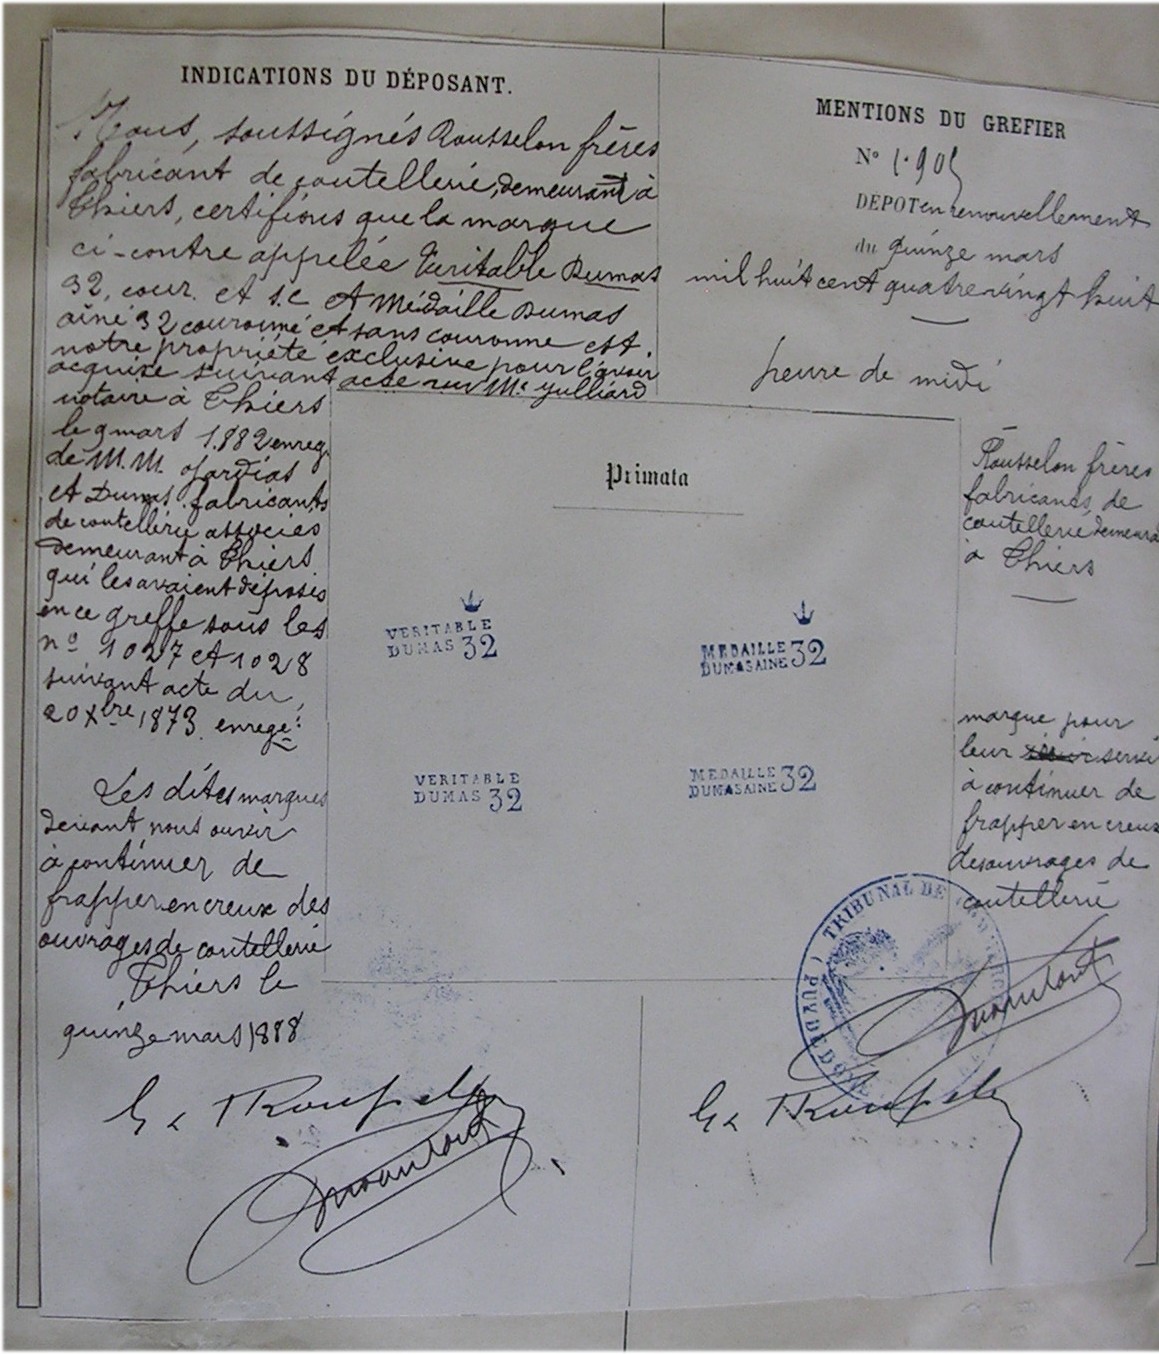 INDICATIONS DU DÉPOSANT.
Nous, soussignés Rousselon frères
fabricant de coutellerie, demeurant à
Thiers, certifions que la marque
ci-contre appelée Veritable Dumas
32, cour. et s.c et Médaille Dumas
ainé 32 couronné et sans couronne est
notre propriété exclusive pour l'avoir
acquise suivant acte reçu Me Julliard
notaire à Thiers
le 9 mars 1.882 enreg.
de M.M. Jardias
et Dumas fabricants
de coutellerie associés
demeurant à Thiers
qui les avaient déposés
en ce greffe sous les
nos 1027 et 1028
suivant acte du
20 Xbre 1873. enregé:
Les dites marques
devant nous
à continuer de
frapper en creux des
ouvrages de coutellerie
Thiers le
quinze mars 1888
MENTIONS DU GREFIER
No 1.905
DÉPOT en renouvellement
du quinze mars
mil huit cent quatre vingt huit
heure de midi
Primata
VERITABLE
DUMAS 32
MEDAILLE
DUMAS AINE 32
VERITABLE
DUMAS 32
MEDAILLE
DUMAS AINE 32
Rousselon frères
fabricants, de
coutellerie, demeura
à Thiers
marque pour
leur servir
à continuer de
frapper en creux
des ouvrages de
coutellerie
TRIBUNAL DE
(PUY DE DOME